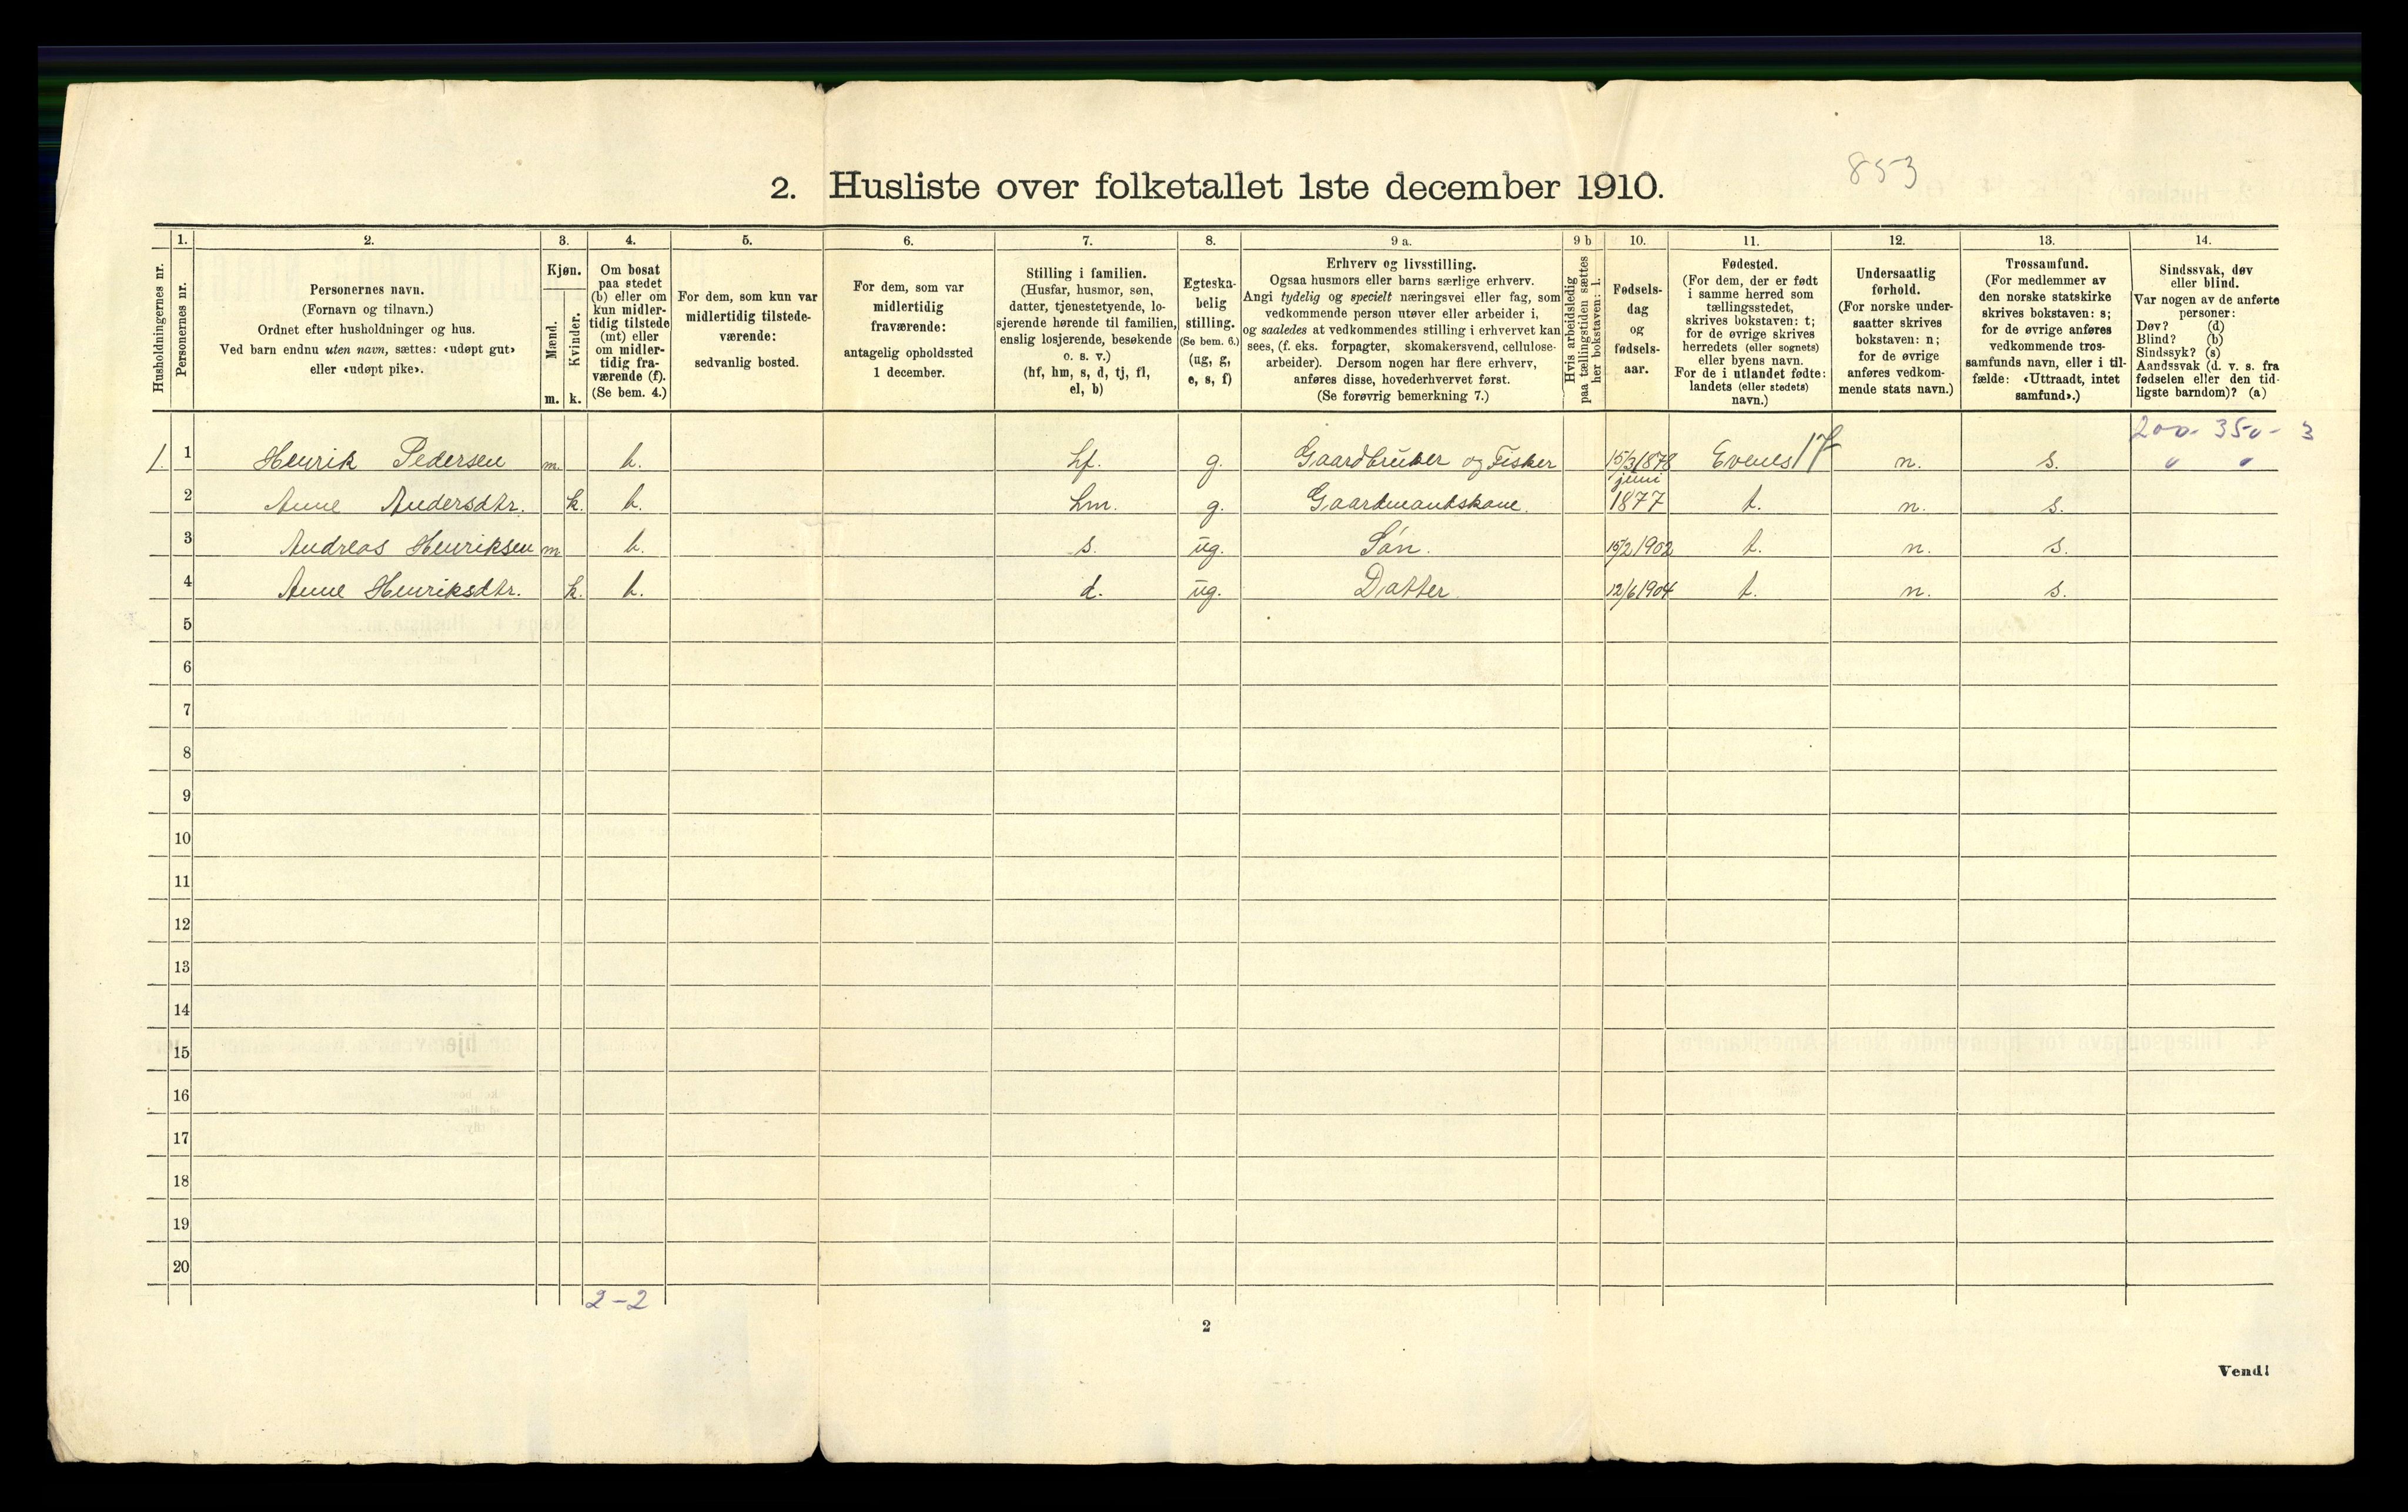 853
2. Husliste over folketallet 1ste december 1910.
Husholdningernes nr.
1. Personernes nr.
2. Personernes navn.
(Fornavn og tilnavn.)
Ordnet efter husholdninger og hus.
Ved barn endnu uten navn, sættes: «udøpt gut»
eller «udøpt pike».
3. Kjøn.
Mænd. m.
Kvinder. k.
4. Om bosat
paa stedet
(b) eller om
kun midler-
tidig tilstede
(mt) eller
om midler-
tidig fra-
værende (f).
(Se bem. 4.)
5. For dem, som kun var
midlertidig tilstede-
værende:
sedvanlig bosted.
6. For dem, som var
midlertidig
fraværende:
antagelig opholdssted
1 december.
7. Stilling i familien.
(Husfar, husmor, søn,
datter, tjenestetyende, lo-
sjerende hørende til familien,
enslig losjerende, besøkende
o. s. v.)
(hf, hm, s, d, tj, fl,
el, b)
8. Egteska-
belig
stilling.
(Se bem. 6.)
(ug, g,
e, s, f)
9 a. Erhverv og livsstilling.
Ogsaa husmors eller barns særlige erhverv.
Angi tydelig og specielt næringsvei eller fag, som
vedkommende person utøver eller arbeider i,
og saaledes at vedkommendes stilling i erhvervet kan
sees, (f. eks. forpagter, skomakersvend, cellulose-
arbeider). Dersom nogen har flere erhverv,
anføres disse, hovederhvervet først.
(Se forøvrig bemerkning 7.)
9 b Hvis arbeidsledig
paa tællingstiden sættes
her bokstaven: l.
10. Fødsels-
dag
og
fødsels-
aar.
11. Fødested.
(For dem, der er født
i samme herred som
tællingsstedet,
skrives bokstaven: t;
for de øvrige skrives
herredets (eller sognets)
eller byens navn.
For de i utlandet fødte:
landets (eller stedets)
navn.)
12. Undersaatlig
forhold.
(For norske under-
saatter skrives
bokstaven: n;
for de øvrige
anføres vedkom-
mende stats navn.)
13. Trossamfund.
(For medlemmer av
den norske statskirke
skrives bokstaven: s;
for de øvrige anføres
vedkommende tros-
samfunds navn, eller i til-
fælde: «Uttraadt, intet
samfund».)
14. Sindssvak, døv
eller blind.
Var nogen av de anførte
personer:
Døv? (d)
Blind? (b)
Sindssyk? (s)
Aandssvak (d. v. s. fra
fødselen eller den tid-
ligste barndom)? (a)
200 - 350 - 3
1. 1 Henrik Pedersen m. b. hf. g. Gaardbruker og Fisker 15/3 1878 Evenes 17 n. s. " "
2 Anne Andersdtr. k. b. hm. g. Gaardmandskone. juni 1877 t. n. s.
3 Andreas Henriksen m b. s. ug. Søn. 15/2 1902 t. n. s.
4 Anne Henriksdtr. k. b. d. ug. Datter. 12/6 1904 t. n. s.
5
6
7
8
9
10
11
12
13
14
15
16
17
18
19
20
2 - 2
2
Vend!